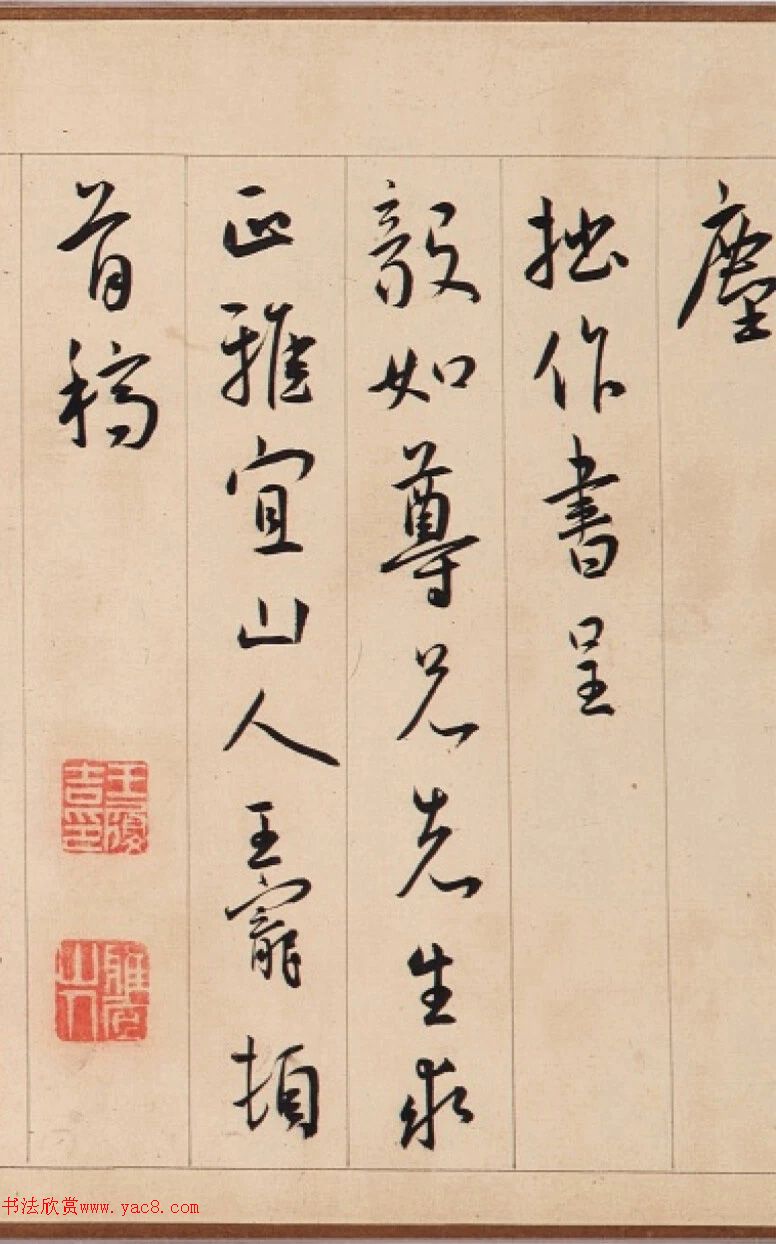 塵
拙作書呈
毅如尊兄先生求
正雅宜山人王寵頓
首稿
王履吉印
雅宜山人
书法欣赏www.yac8.com